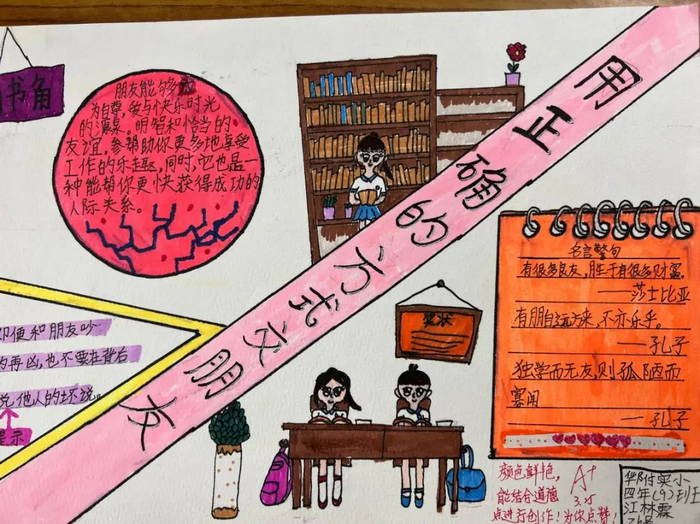 书角
朋友能够
为自尊，爱与快乐时光
的源泉。明智和恰当的
友谊，参帮助你更多地享受
工作的乐趣，同时，它也是一
种能帮你更快获得成功的
人际关系。
用正确的方式交朋友
名言警句
有很多良友，胜于有很多财富。
——莎士比亚
有朋自远方来，不亦乐乎。
——孔子
独学而无友，则孤陋而
寡闻
——孔子
奖状
即便和朋友吵
的再凶，也不要在背后
说他人的坏说。
提示
颜色鲜艳，
能结合道德
点进行创作！为你点赞！
A+
3.25
华附实小
四年（9）班
江林霖